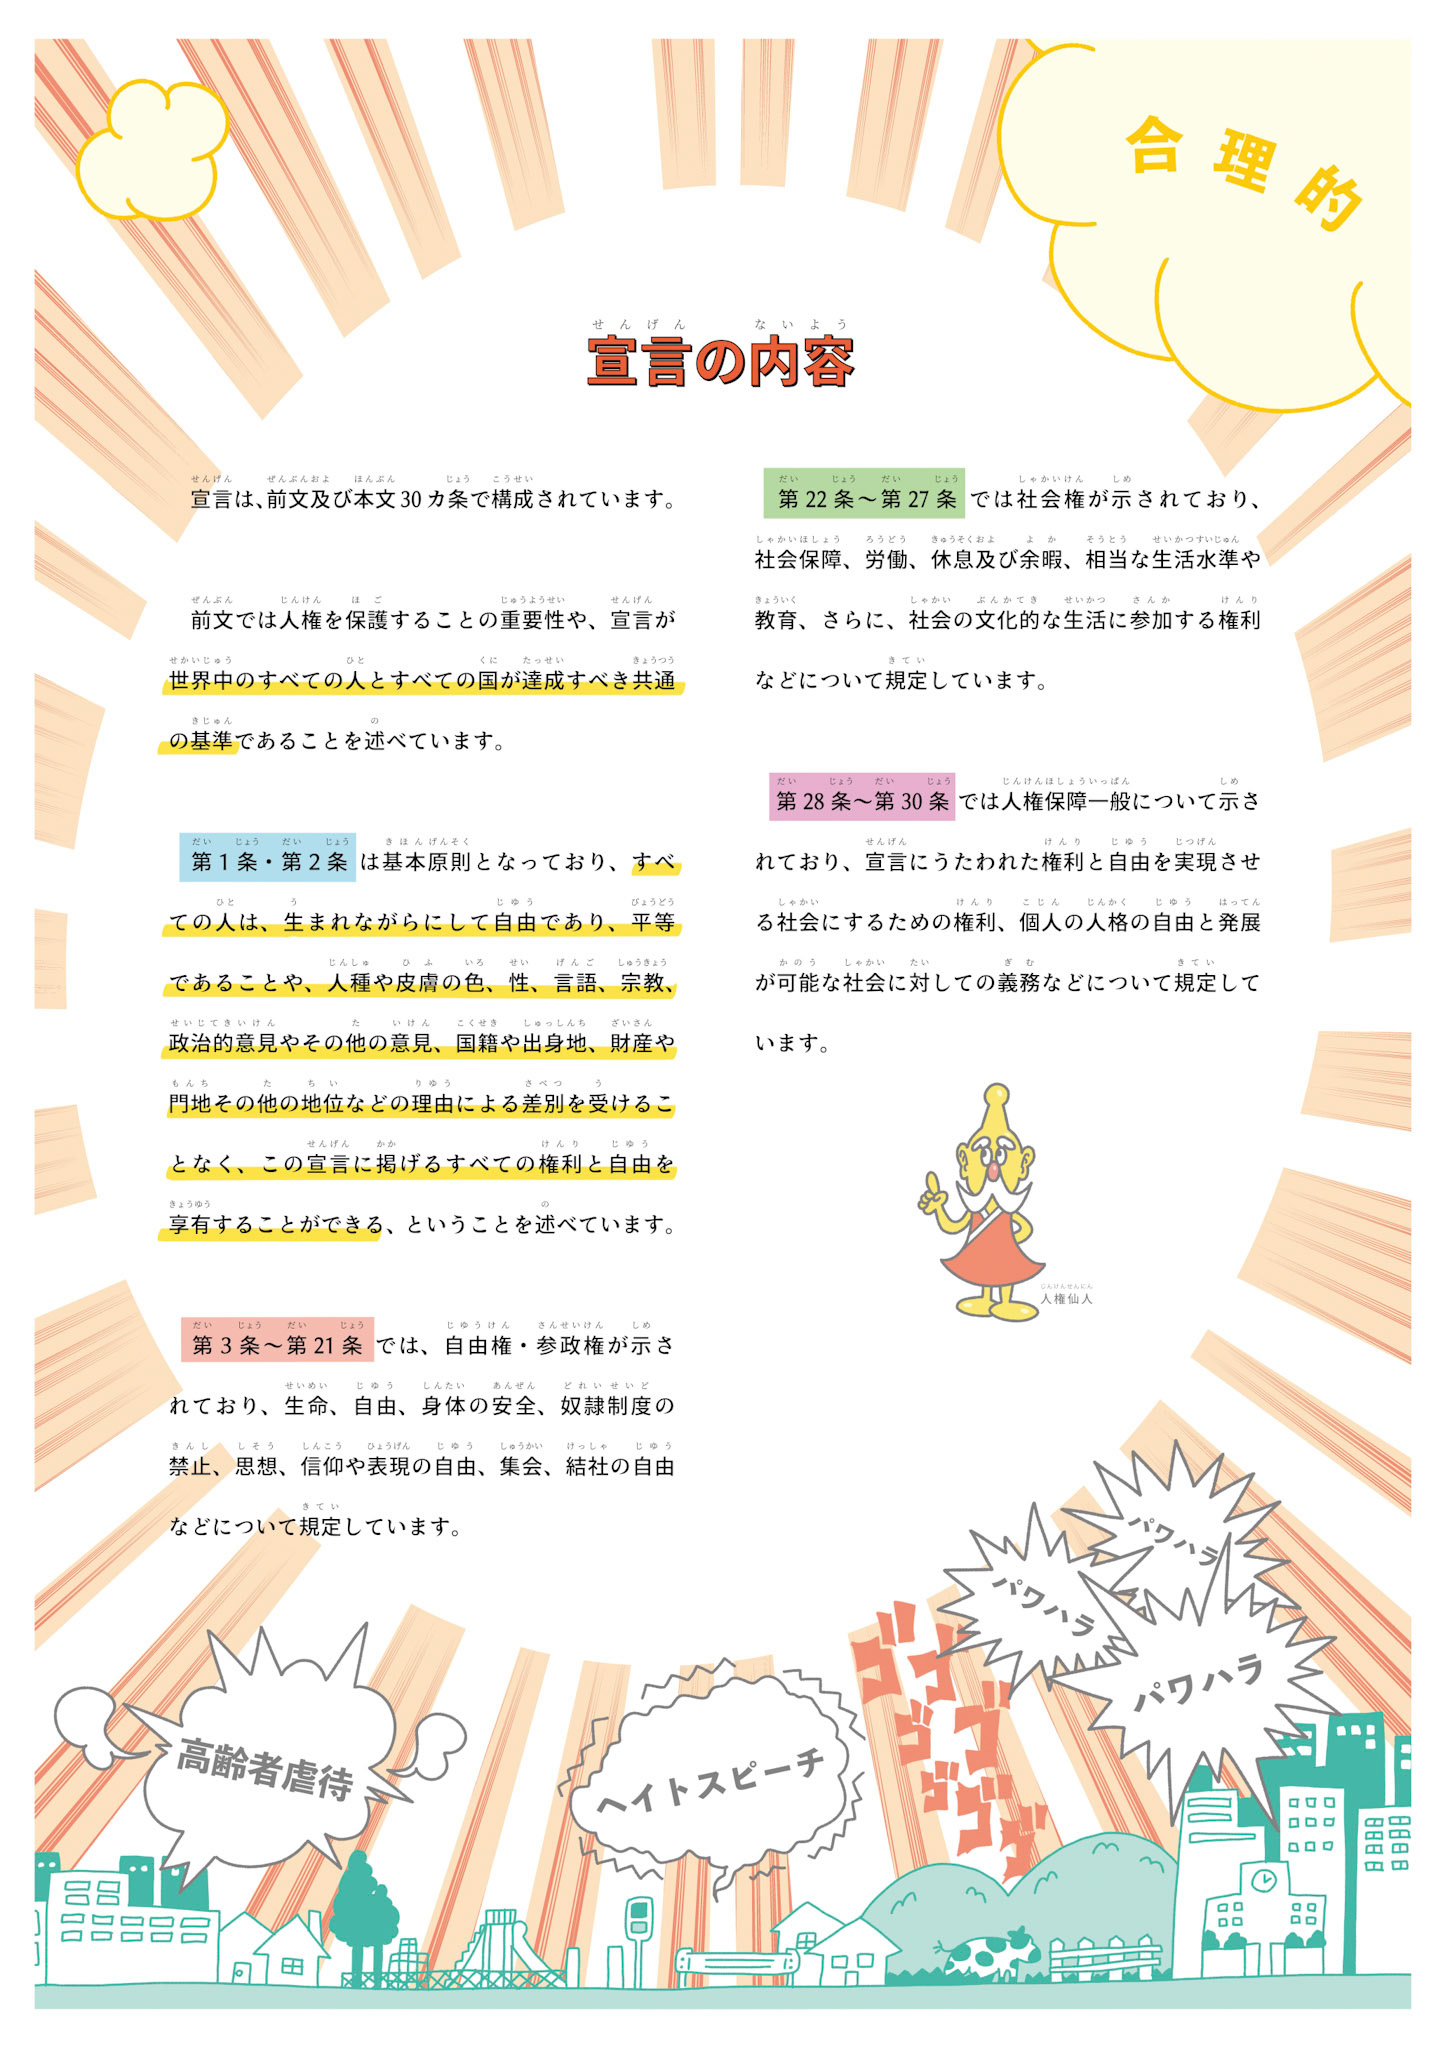 合理的
宣言の内容
宣言は、前文及び本文30カ条で構成されています。
前文では人権を保護することの重要性や、宣言が
世界中のすべての人とすべての国が達成すべき共通
の基準であることを述べています。
第1条・第2条は基本原則となっており、すべ
ての人は、生まれながらにして自由であり、平等
であることや、人種や皮膚の色、性、言語、宗教、
政治的意見やその他の意見、国籍や出身地、財産や
門地その他の地位などの理由による差別を受けるこ
となく、この宣言に掲げるすべての権利と自由を
享有することができる、ということを述べています。
第3条～第21条では、自由権・参政権が示さ
れており、生命、自由、身体の安全、奴隷制度の
禁止、思想、信仰や表現の自由、集会、結社の自由
などについて規定しています。
第22条～第27条では社会権が示されており、
社会保障、労働、休息及び余暇、相当な生活水準や
教育、さらに、社会の文化的な生活に参加する権利
などについて規定しています。
第28条～第30条では人権保障一般について示さ
れており、宣言にうたわれた権利と自由を実現させ
る社会にするための権利、個人の人格の自由と発展
が可能な社会に対しての義務などについて規定して
います。
じんけんせんにん
人権仙人
パワハラ
パワハラ
パワハラ
ゴゴゴゴゴゴゴ
ヘイトスピーチ
高齢者虐待